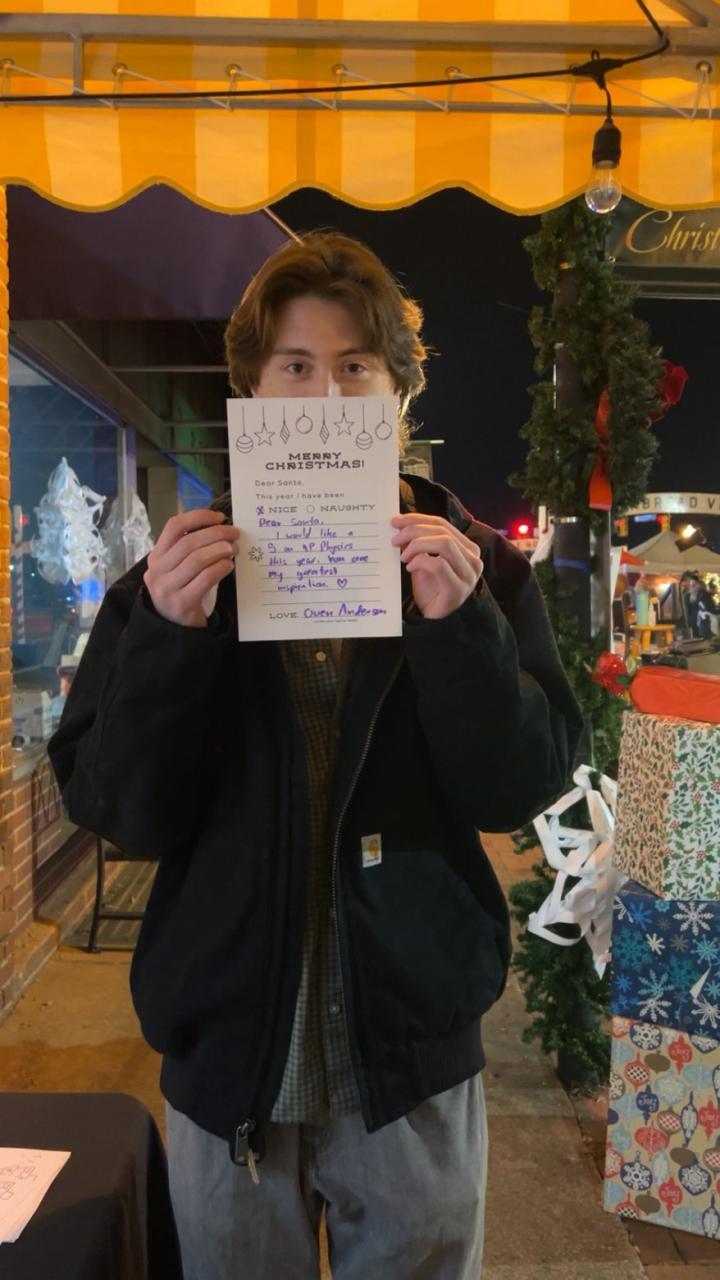 Christ
BREAD V
MERRY
CHRISTMAS!
Dear Santa,
This year I have been
NICE NAUGHTY
Dear Santa,
I would like a
on AP Physics
this year.
my greatest
inspiration. ♡
LOVE, Owen Anderson
Joy
Joy
Joy